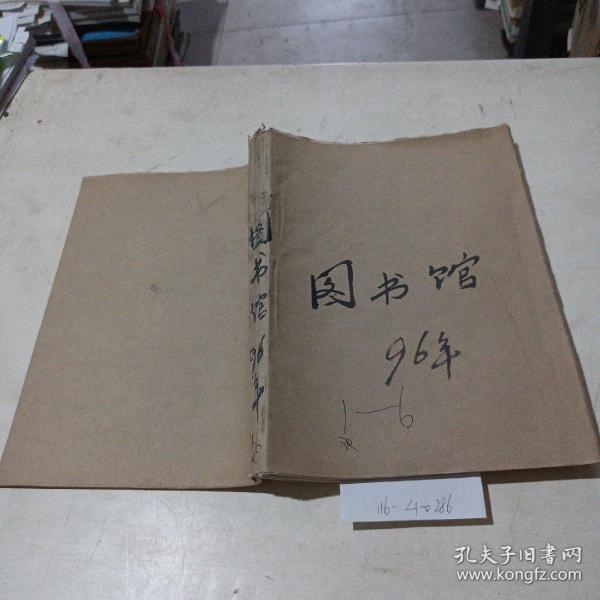 图书馆
96年
1-6
图书馆 96年
116-4-0286
孔夫子旧书网
www.kongfz.com